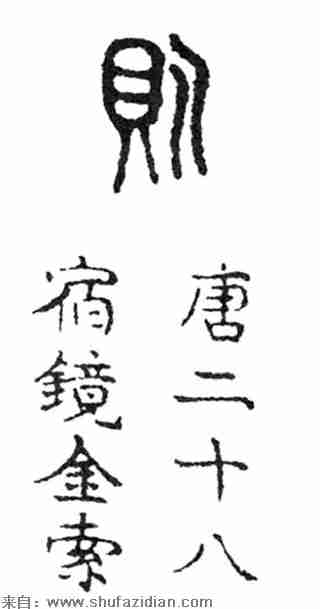 則
唐二十八
宿鏡金索
来自：www.shufazidian.com